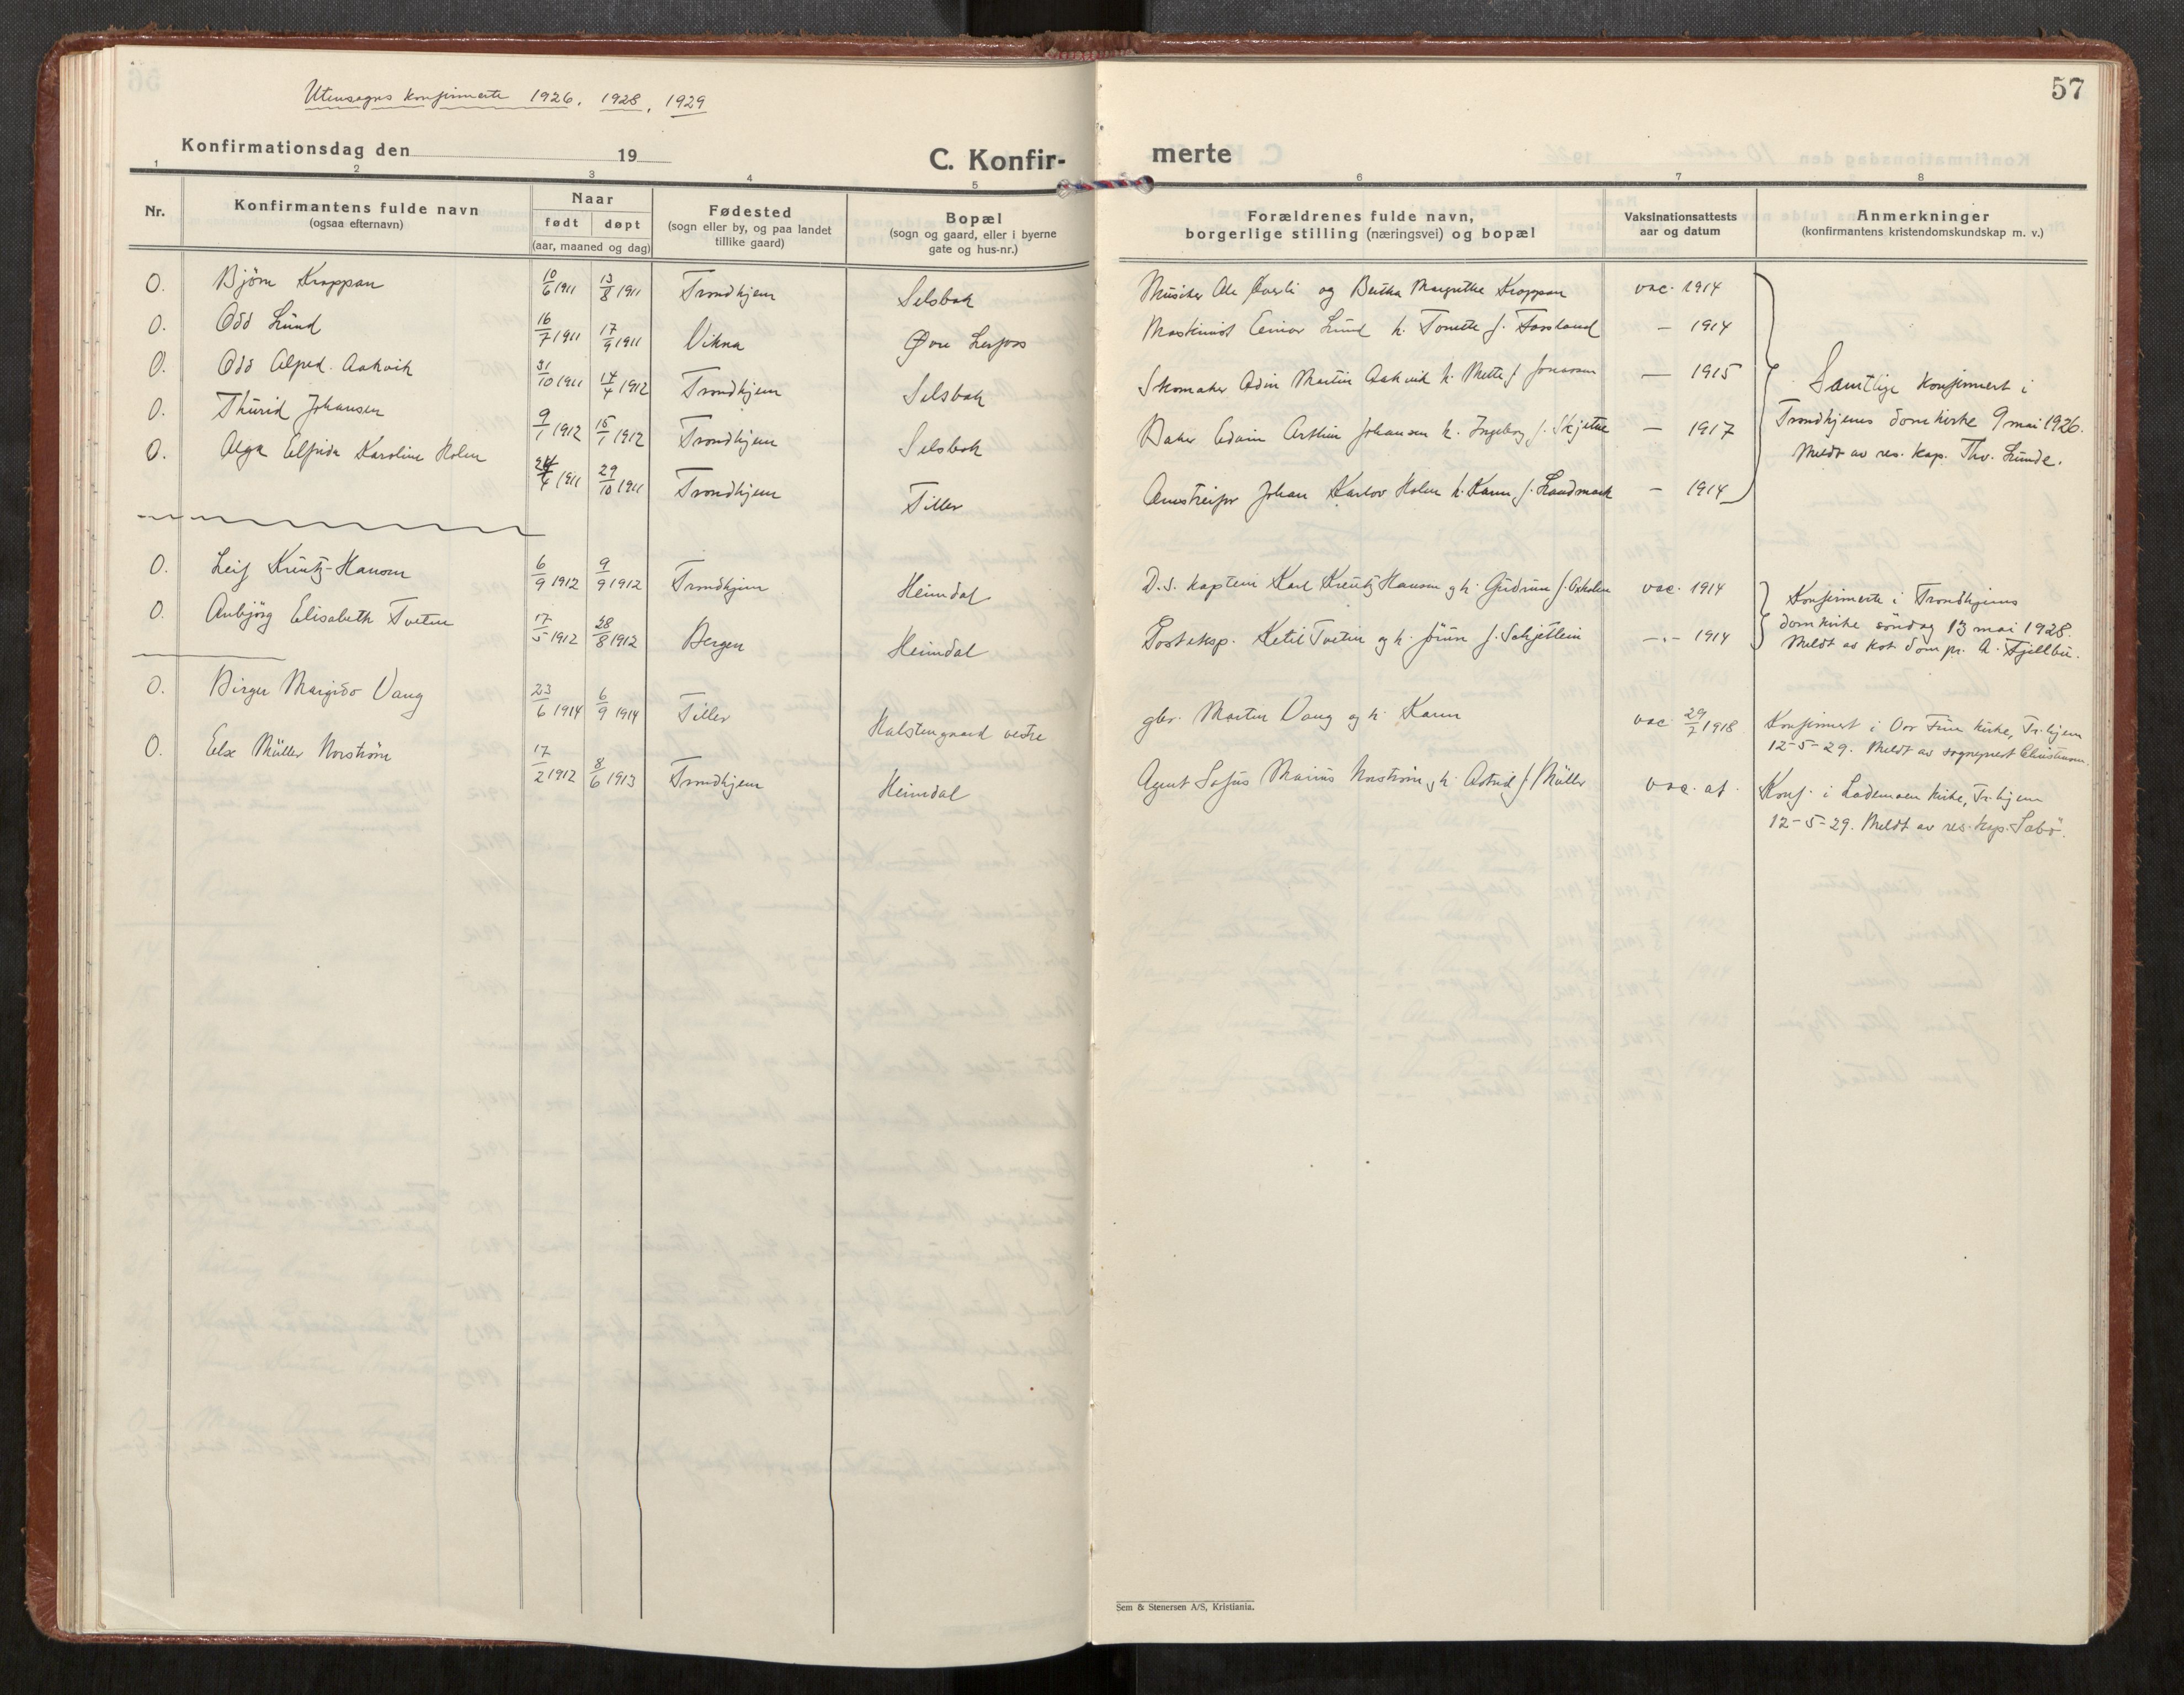 57
Utensogns konfirmerte 1926, 1928, 1929
Konfirmationsdag den 19
C. Konfir-
merte
1 2 3 4 5 6 7 8
Nr.
Konfirmantens fulde navn
(ogsaa efternavn)
Naar
født døpt
(aar, maaned og dag)
Fødested
(sogn eller by, og paa landet
tillike gaard)
Bopæl
(sogn og gaard, eller i byerne
gate og hus-nr.)
Forældrenes fulde navn,
borgerlige stilling (næringsvei) og bopæl
Vaksinationsattests
aar og datum
Anmerkninger
(konfirmantens kristendomskundskap m. v.)
0. Bjørn Kroppan 10/6 1911 13/8 1911 Trondhjem Selsbak Musiker Ole Øverli og Bertha Margrethe Kroppan vac. 1914
0. Odd Lund 16/7 1911 17/9 1911 Vikna Øvre Lerfoss Maskinist Einar Lund h. Tomette f. Fossland — 1914
0. Odd Alfred Aakvik 31/10 1911 14/4 1912 Trondhjem Selsbak Skomaker Odin Martin Aakvik h. Mette f. Jonassen — 1915
0. Thurid Johansen 9/1 1912 15/1 1912 Trondhjem Selsbak Baker Edvin Arthur Johansen h. Ingeborg f. Skjetne — 1917
0. Olga Elfrida Karoline Holm 24/4 1911 29/10 1911 Trondhjem Tiller Johan Karlov Holm h. Karen f. Landmark — 1914
Samtlige konfirmert i
Trondhjems domkirke 9 mai 1926.
Meldt av res. kap. Thv. Lunde.
0. Leif Kreutz-Hansen 6/9 1912 9/9 1912 Trondhjem Heimdal D.s. kaptein Karl Kreutz Hansen og h. Gudrun f. Oxholm vac. 1914
0. Anbjørg Elisabeth Tveten 17/5 1912 28/8 1912 Bergen Heimdal Posteksp. Ketil Tveten og h. Jörun f. Schjetlein —"— 1914
Konfirmerte i Trondhjems
domkirke søndag 13 mai 1928.
Meldt av kst. dompr. A. Fjellbu.
0. Birger Margido Vang 23/6 1914 6/9 1914 Tiller Halstengaard vestre gbr. Martin Vang og h. Karen vac. 29/7 1918 Konfirmert i Vor Frue kirke, Tr.hjem
12-5-29. Meldt av sogneprest Christensen.
0. Else Müller Norstrøm 17/2 1912 8/6 1913 Trondhjem Heimdal Agent Sofus Marius Norstrøm og h. Astrid f. Müller vac. at. Konf. i Lademoen kirke, Tr.hjem
12-5-29. Meldt av res. kap. Sabø.
Sem & Stenersen A/S, Kristiania.